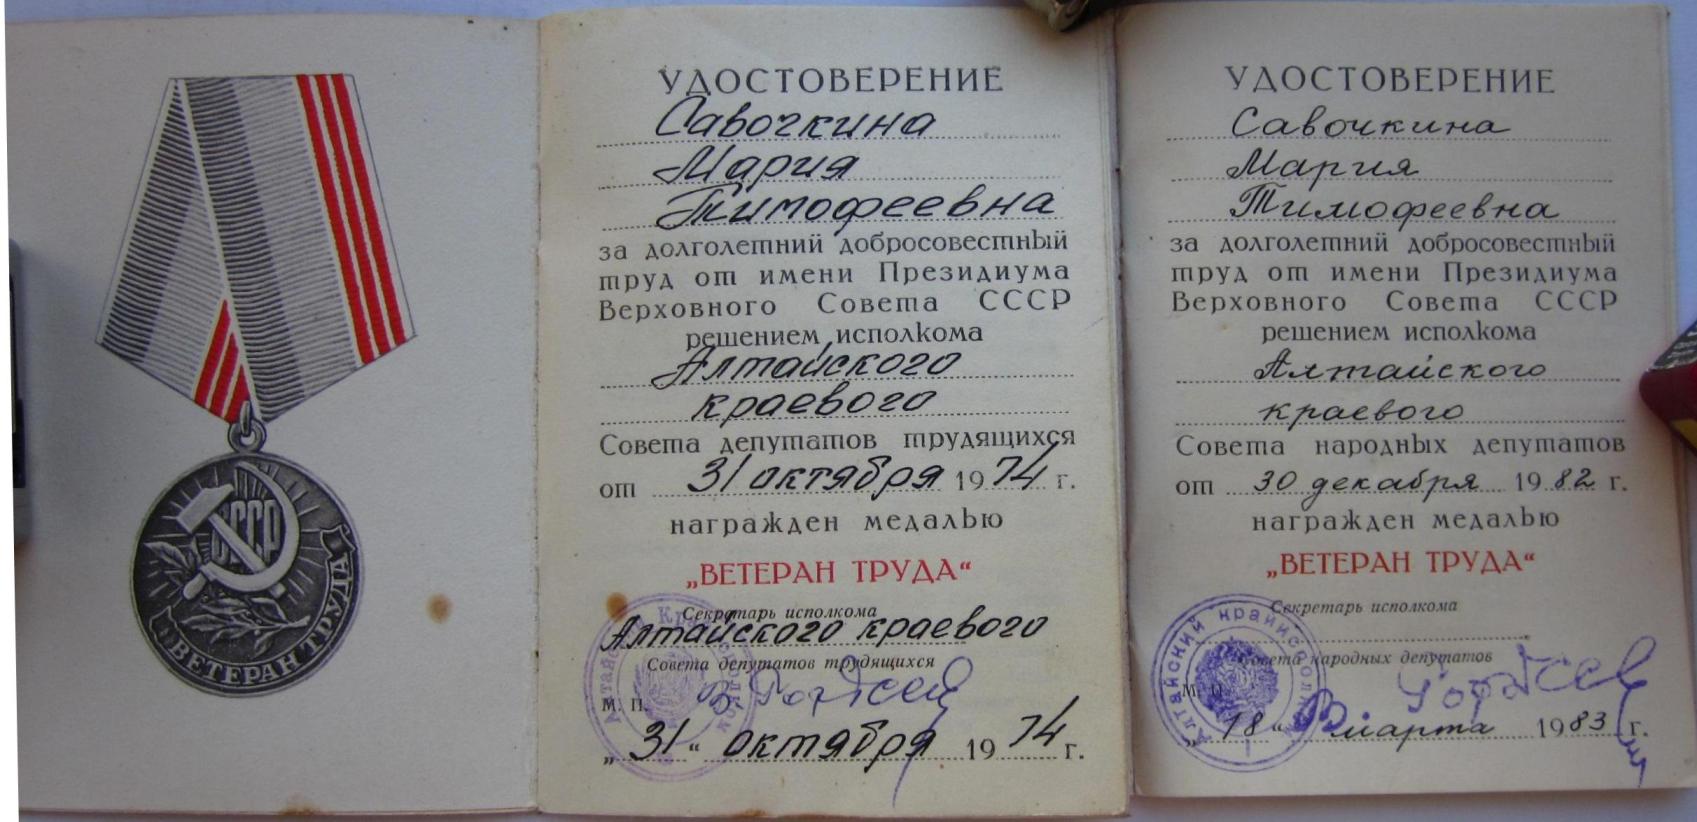 СССР
ВЕТЕРАН ТРУДА
УДОСТОВЕРЕНИЕ
Савочкина
Мария
Тимофеевна
за долголетний добросовестный
труд от имени Президиума
Верховного Совета СССР
решением исполкома
Алтайского
краевого
Совета депутатов трудящихся
от 31 октября 1974 г.
награжден медалью
„ВЕТЕРАН ТРУДА“
Секретарь исполкома
Алтайского краевого
Совета депутатов трудящихся
М. П.
„31“ октября 1974 г.
УДОСТОВЕРЕНИЕ
Савочкина
Мария
Тимофеевна
за долголетний добросовестный
труд от имени Президиума
Верховного Совета СССР
решением исполкома
Алтайского
краевого
Совета народных депутатов
от 30 декабря 1982 г.
награжден медалью
„ВЕТЕРАН ТРУДА“
Секретарь исполкома
Совета народных депутатов
Алтайский крайисполком
М. П.
„18“ марта 1983 г.